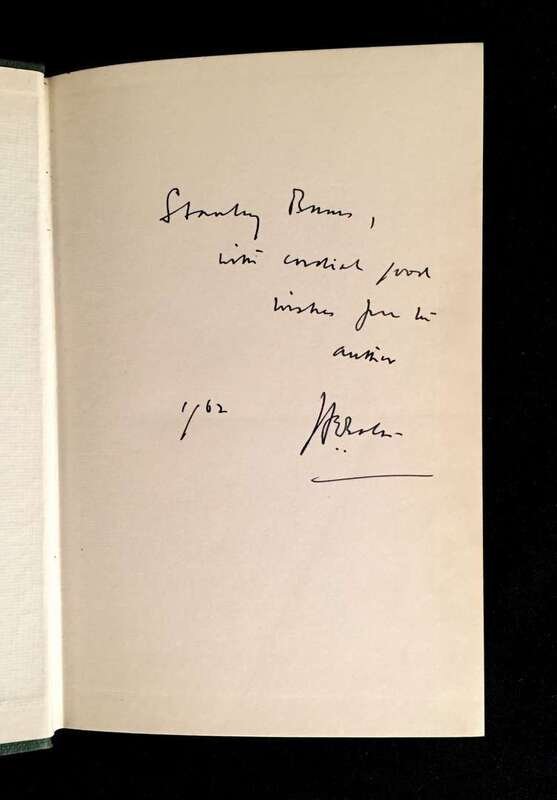 Stanley Burns,
with cordial good
wishes from the
author
1/62